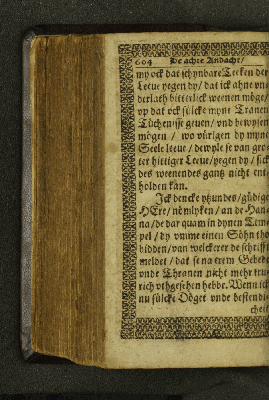 604 De achte Andacht/
my ock dat schynbare Teeken der
Leeue yegen dy/ dat ick ahne vn-
derlath bitterlick weenen möge/
vp dat ock sülcke myne Tranen
Tüchenisse geuen/ vnd bewysen
mögen / wo vürigen dy myne
Seele leeue / dewyle se van gro-
ter hittiger Leeue/yegen dy / sick
des weenendes gantz nicht ent-
holden kan.
Ick dencke ytzundes/güdige
HEre/ nömlyken/ an de Han-
na/de dar quam in dynen Tem-
pel / dy vmme einen Söhn tho
bidden/van welckerer de schrifft
meldet / dat se na erem Gebede
vnde Thranen nicht mehr tru-
rich vthgesehen hebbe. Wenn ick
nu sülcke Döget vnde bestendi-
cheit